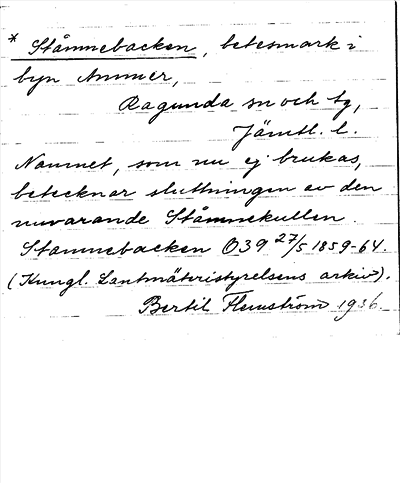 * Ståmnebacken, betesmark i
byn Ammer,
Ragunda sn och tg,
Jämtl. l.
Namnet, som nu ej brukas,
betecknar sluttningen av den
nuvarande Ståmnekullen.
Stamnebacken Ö39 27/5 1859-64.
(Kungl. Lantmäteristyrelsens arkiv).
Bertil Flemström 1936.